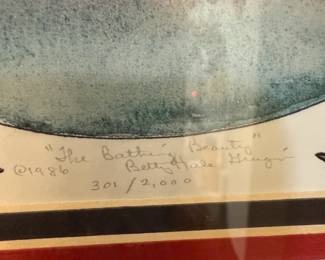 "The Bathing Beauty"
©1986 Betty Hale
301/2,000